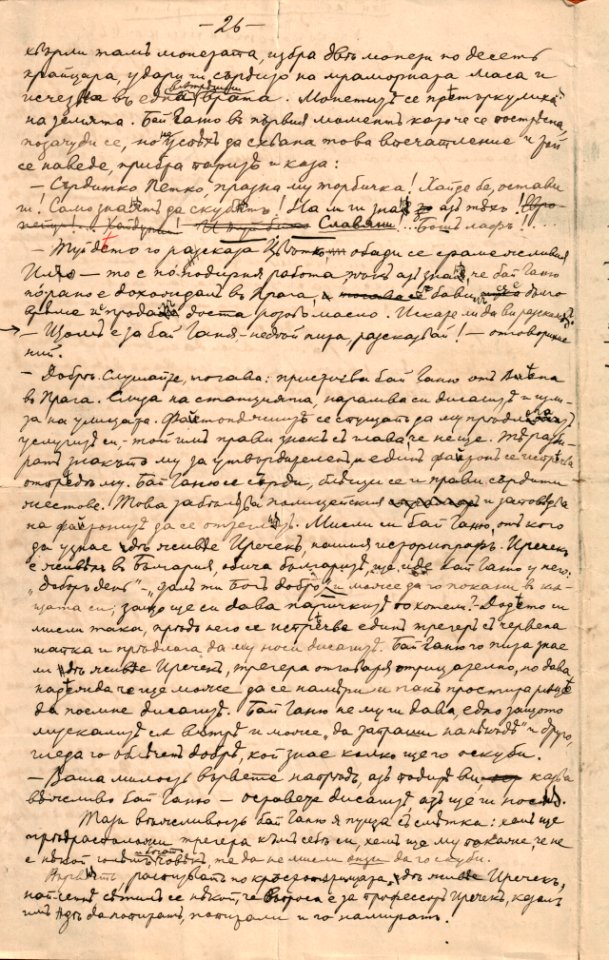 — 26 —
хвърли тамъ монетата, избра двѣ монети по десеть
крайцара, удари ги сърдито на мраморната маса и
исчезна въ една врата. Монетитѣ се претъркулиха
на земята. Бай Ганю въ първия моментъ като че се постресна,
позачуди се, но не успѣ да схвана това впечатление и
се наведе, прибра паритѣ и каза:
— Сърдитко Петко, празна му торбичка! Хайде бе, остави
ги! Само знаятъ да скубятъ! На ли ги зная азъ тѣхъ!
Славяни!.. Бошъ лафъ!...
— Туй дето го разказа Цвѣтко обади се срамежливия
Илчо — то е по-подирня работа, тъкъ азъ зная, че бай Ганю
по-рано е дохождалъ въ Прага, бави се дълго
врѣме и продаде доста розово масло. Искате ли да ви разкажа?
— Щомъ е за бай Ганя — недѣй пита, разказвай! — отговорихме
ний.
— Добрѣ. Слушайте, тогава: пристигва бай Ганю отъ Виена
въ Прага. Слиза на станцията, нарамва си дисагитѣ и изли-
за на улицата. Файтонджиитѣ се стущатъ да му прѣдлагатъ
услугитѣ си, — той имъ прави знакъ съ глава, че не ще. Тѣ раз-
ратъ знакътъ му за утвърдителенъ и единъ файтонъ се исправя
отпредъ му. Бай Ганю се сърди, блещи се и прави сърдити
жестове. Това забѣлѣзва полицейския и заповѣдва
на файтонитѣ да се оттеглятъ. Мисли си бай Ганю, отъ кого
да узнае гдѣ живѣе Иречекъ, нашия историографъ. Иречекъ
е живѣлъ въ България, обича българитѣ, ще иде бай Ганю у него:
„добъръ день“ — „далъ ти Богъ добро“, и може да го покани въ кѫ-
щата си; защо ще си дава паричкитѣ по хотели? — Додето си
мисли така, прѣдъ него се испречва единъ трегеръ съ червена
шапка и прѣдлага да му носи дисагитѣ. Бай Ганю го пита знае
ли гдѣ живѣе Иречекъ, трегера отговаря отрицателно, но дава
надѣжда че ще може да се намѣри и пакъ простира рѫцѣ
да поеме дисагитѣ. Бай Ганю не му ги дава, едно защото
мускалитѣ сѫ вътрѣ и може „да запраши нанѣкѫдѣ“ и друго,
гледа го облѣченъ добрѣ, кой знае колко ще го оскуби.
— Ваша милость вървете напрѣдъ, азъ подирѣ ви, казва
вѣжливо бай Ганю — оставете дисагитѣ, азъ ще ги нося.
Тази вѣжливость бай Ганю я пуща съ смѣтка: хемъ ще
прѣдразположи трегера къмъ себъ си, хемъ ще му покаже, че не
е нѣкой човѣкъ, та да не мисли да го скуби.
Вървятъ, распитватъ по кръстопѫтищата, гдѣ живѣе Иречекъ,
най-сетнѣ сѣтилъ се нѣкой, че въпроса е за професоръ Иречекъ, казалъ
имъ гдѣ да потърсятъ, потърсили и го намѣрятъ.